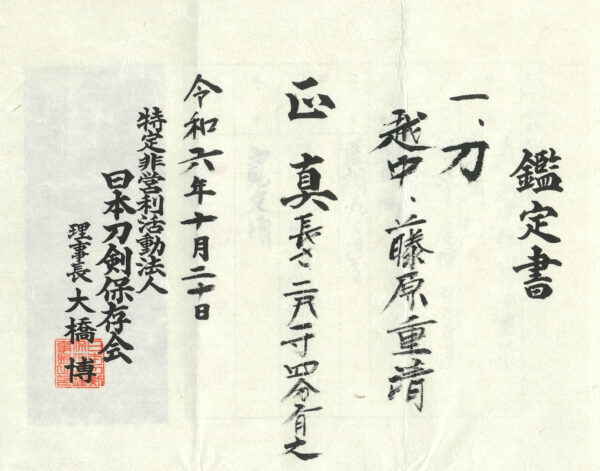 鑑定書
一、刀
越中、藤原重清
正真 長さ 二尺一寸四分有之
令和六年十月二十日
特定非営利活動法人
日本刀剣保存会
理事長 大橋 博